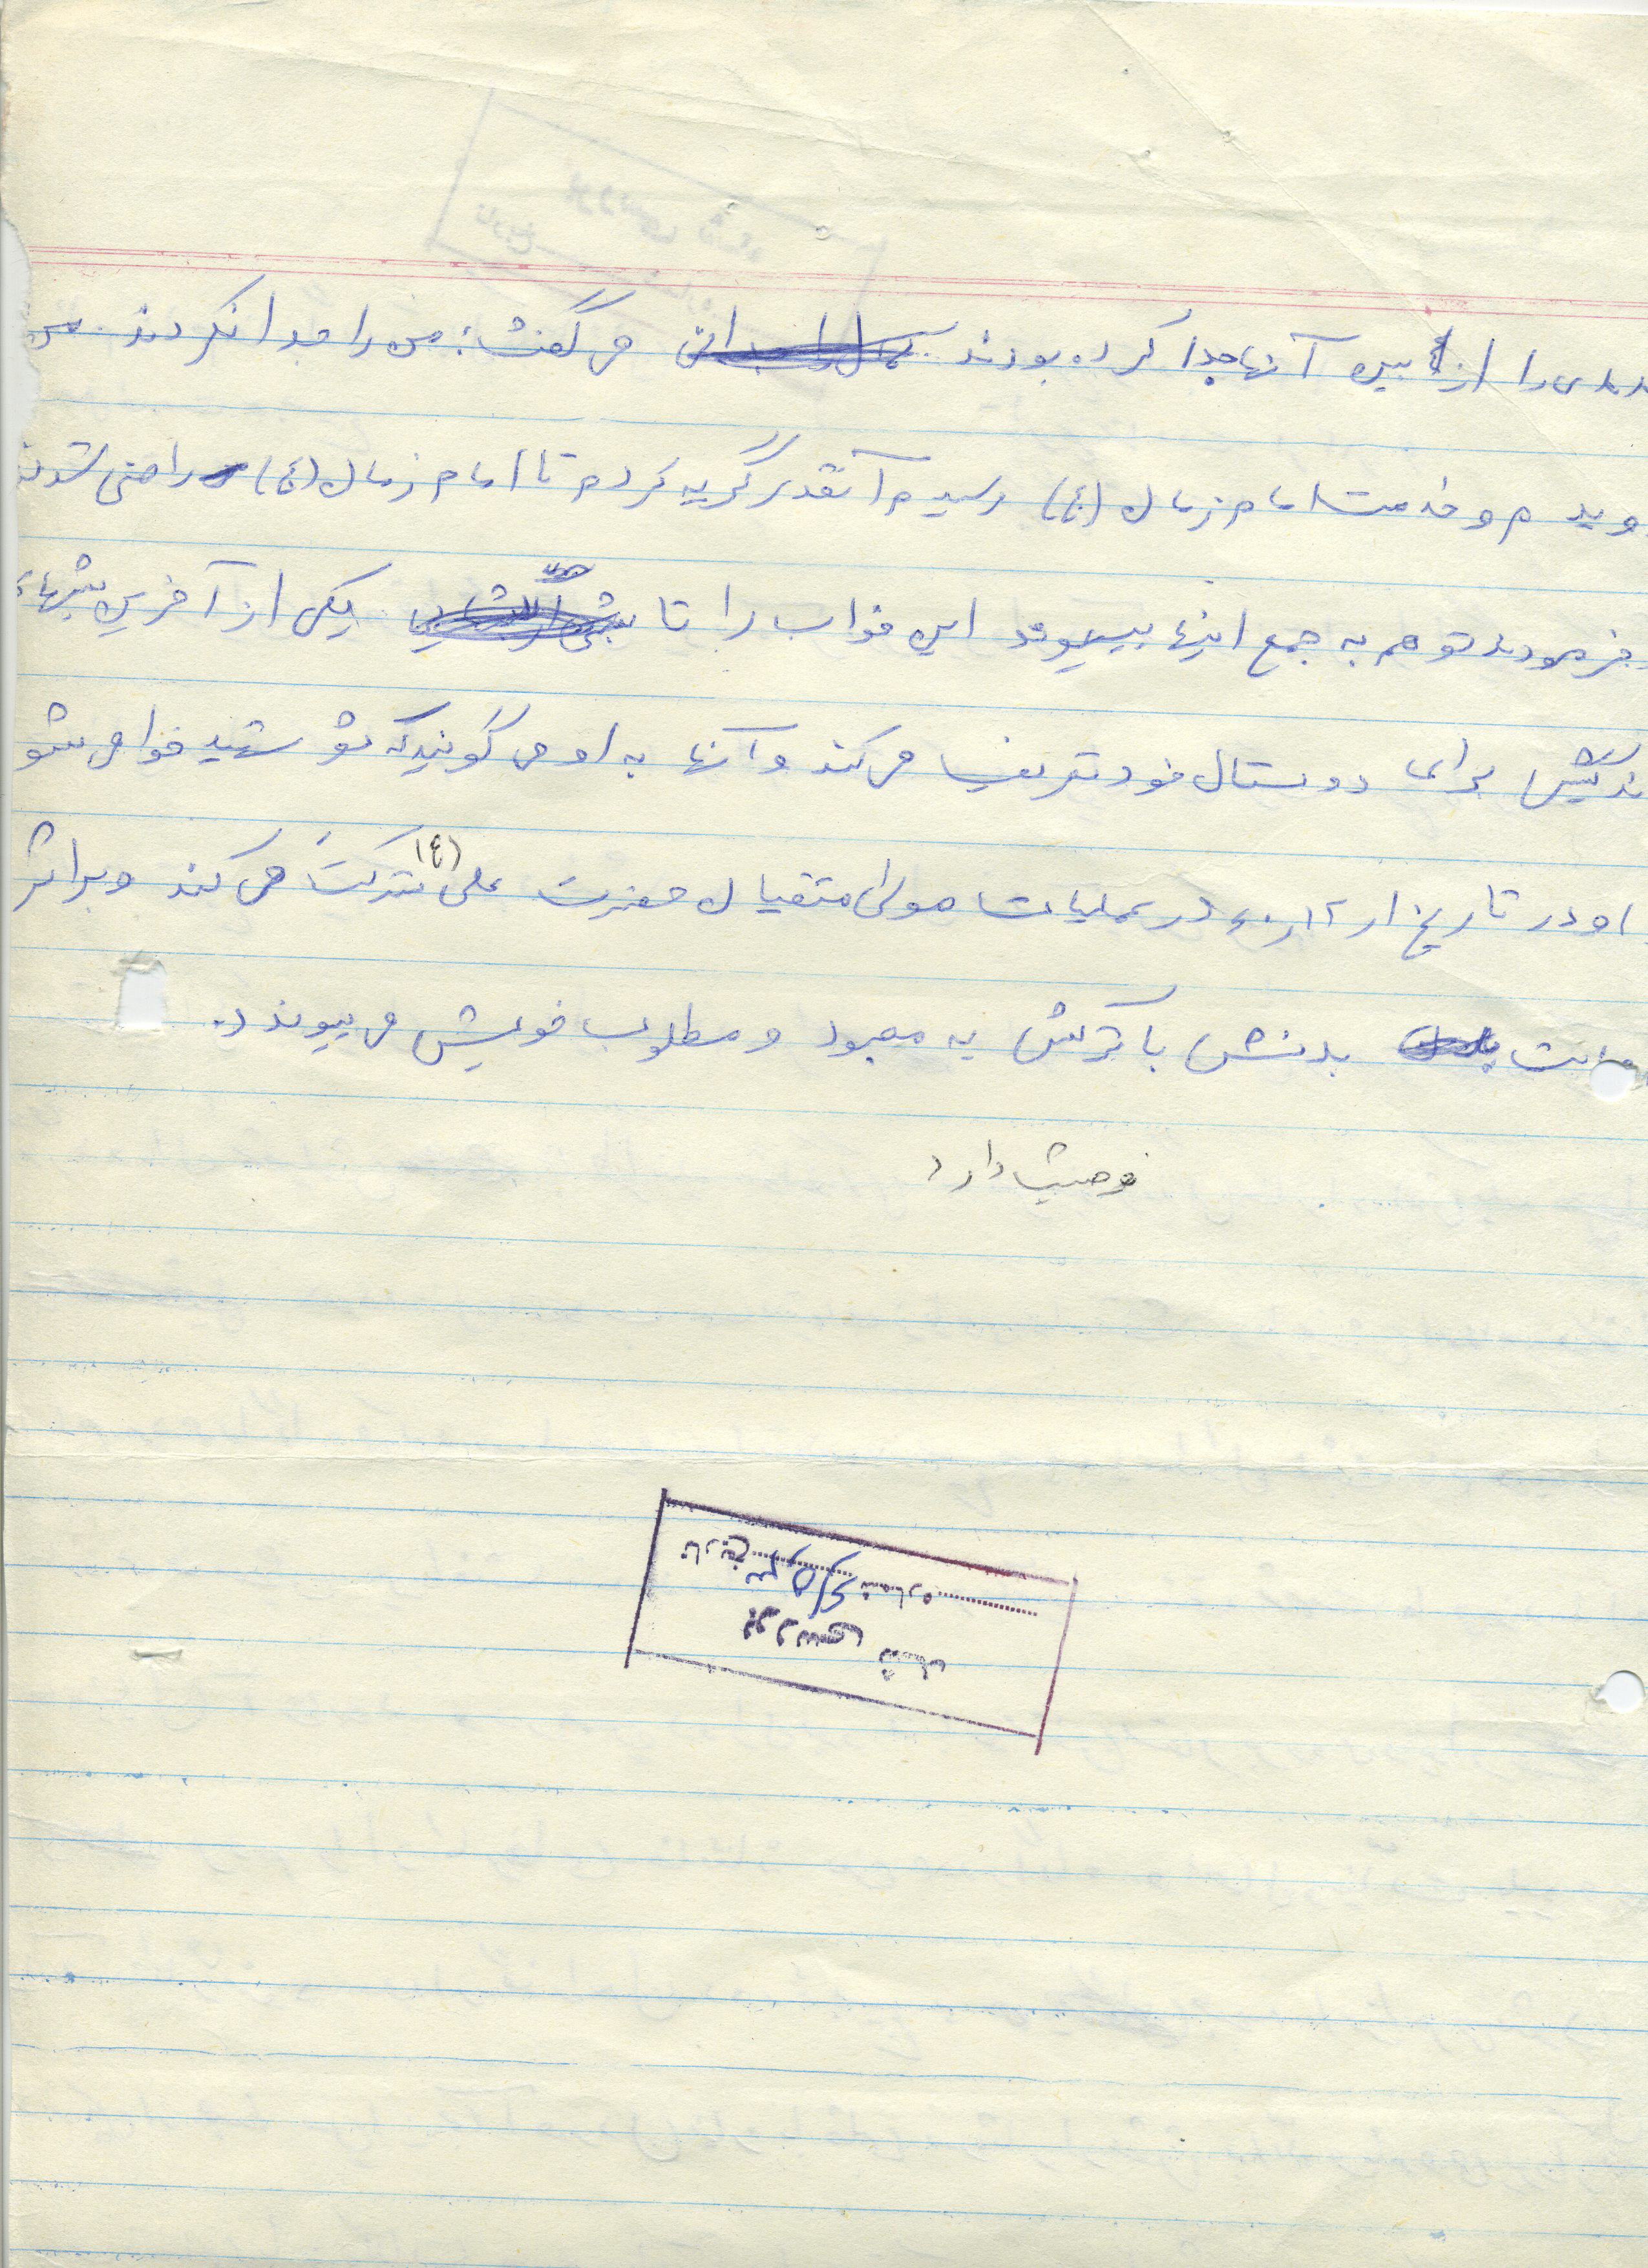 را از بین آنها جدا کرده بودند می گفت: من را جدا نکردند من
وید م و خدمت امام زمان (ع) رسیدم آنقدر گریه کردم تا امام زمان (ع) راضی شدند
فرمودند تو هم به جمع اینها بپیوند این خواب را تا یکی از آخرین شبهای
برای دوستان خود تعریف می کند و آنها به او می گویند که تو شهید خواهی شو
او در تاریخ ۱ر۱۲ر۶۰ در عملیات مولی متقیان حضرت علی (ع) شرکت می کند و بر اثر
بدنش با ترکش به معبود و مطلوب خویش می پیوندد.
وصیت دارد
تاریخ
شماره
بررسی شد